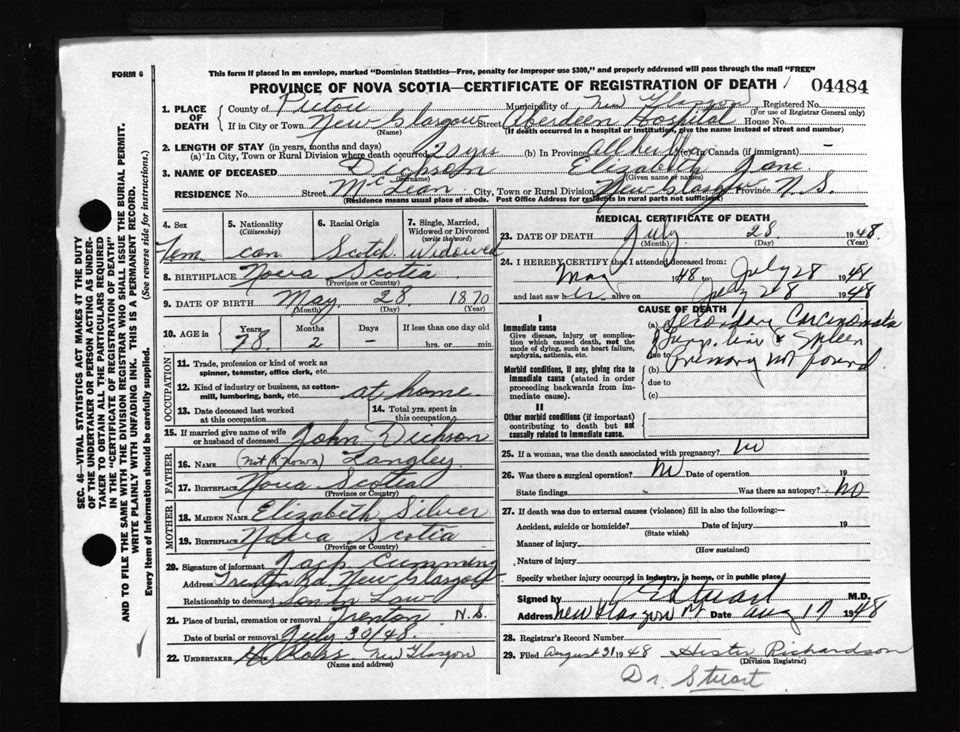 FORM 6
This form if placed in an envelope, marked "Dominion Statistics—Free, penalty for improper use $300," and properly addressed will pass through the mail "FREE"
PROVINCE OF NOVA SCOTIA—CERTIFICATE OF REGISTRATION OF DEATH 04484
1. PLACE OF DEATH
County of Pictou Municipality of New Glasgow Registered No.
(For use of Registrar General only)
If in City or Town New Glasgow Street Aberdeen Hospital House No.
(Name) (If death occurred in a hospital or institution, give the name instead of street and number)
2. LENGTH OF STAY (in years, months and days)
(a) In City, Town or Rural Division where death occurred 25 yrs (b) In Province all her life (c) In Canada (if immigrant) —
3. NAME OF DECEASED Dickson Elizabeth Jane
(Surname) (Given name or names)
RESIDENCE No. Street McLean City, Town or Rural Division New Glasgow Province N.S.
(Residence means usual place of abode. Post Office Address for residents in rural parts not sufficient)
4. Sex Fem
5. Nationality (Citizenship) can
6. Racial Origin Scotch
7. Single, Married, Widowed or Divorced (write the word) Widowed
8. BIRTHPLACE Nova Scotia
(Province or Country)
9. DATE OF BIRTH May 28. 1870
(Month) (Day) (Year)
10. AGE in Years 78 Months 2 Days - If less than one day old
hrs. or min.
OCCUPATION
11. Trade, profession or kind of work as spinner, teamster, office clerk, etc.
12. Kind of industry or business, as cotton-mill, lumbering, bank, etc. at home
13. Date deceased last worked at this occupation
14. Total yrs. spent in this occupation.
15. If married give name of wife or husband of deceased John Dickson
FATHER
16. NAME (not known) Langley
17. BIRTHPLACE Nova Scotia
(Province or Country)
MOTHER
18. MAIDEN NAME Elizabeth Silver
19. BIRTHPLACE Nova Scotia
(Province or Country)
20. Signature of informant Jack Cumming
Address Trenton Rd. New Glasgow
Relationship to deceased Son in Law
21. Place of burial, cremation or removal Trenton N.S.
Date of burial or removal July 30/48
22. UNDERTAKER Ross. New Glasgow
(Name and address)
MEDICAL CERTIFICATE OF DEATH
23. DATE OF DEATH July 28 1948.
(Month) (Day) (Year)
24. I HEREBY CERTIFY that I attended deceased from:
May 48 to July 28 1948
and last saw er alive on July 28 1948
CAUSE OF DEATH
I
Immediate cause
Give disease, injury or complication which caused death, not the mode of dying, such as heart failure, asphyxia, asthenia, etc.
(a) Secondary Carcinomata
due to Lungs, liver & Spleen
Morbid conditions, if any, giving rise to immediate cause (stated in order proceeding backwards from immediate cause).
(b) Primary not found
due to
(c)
II
Other morbid conditions (if important) contributing to death but not causally related to immediate cause.
25. If a woman, was the death associated with pregnancy? No
26. Was there a surgical operation? No Date of operation 19
State findings Was there an autopsy? No
27. If death was due to external causes (violence) fill in also the following:—
Accident, suicide or homicide? Date of injury 19
(State which)
Manner of injury
(How sustained)
Nature of injury
Specify whether injury occurred in industry, in home, or in public place
Signed by Stuart M.D.
Address New Glasgow Date Aug 17 1948
28. Registrar's Record Number
29. Filed August 31 1948 Hester Richardson
(Division Registrar)
Dr. Stuart
SEC. 46—VITAL STATISTICS ACT MAKES IT THE DUTY
OF THE UNDERTAKER OR PERSON ACTING AS UNDER-
TAKER TO OBTAIN ALL THE PARTICULARS REQUIRED
IN THE "CERTIFICATE OF REGISTRATION OF DEATH"
AND TO FILE THE SAME WITH THE DIVISION REGISTRAR WHO SHALL ISSUE THE BURIAL PERMIT.
WRITE PLAINLY WITH UNFADING INK. THIS IS A PERMANENT RECORD.
Every item of information should be carefully supplied. (See reverse side for instructions.)